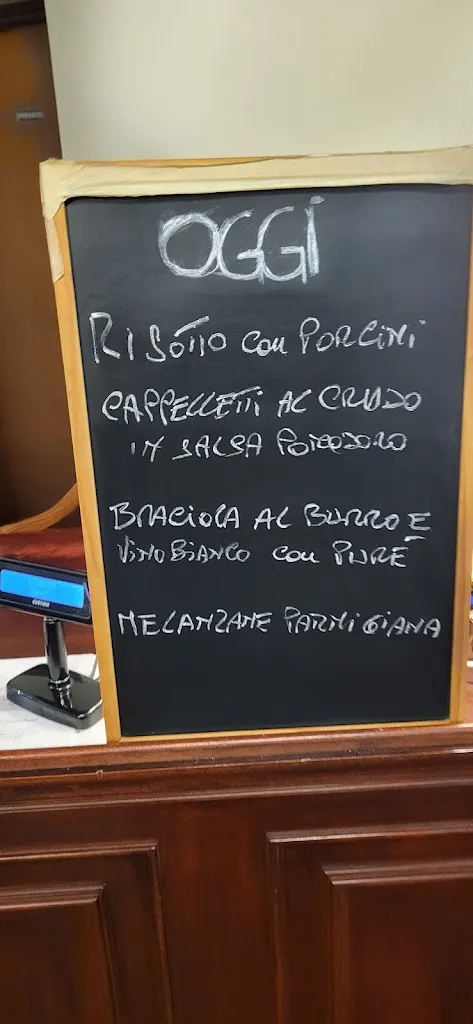 OGGI
RISOTTO con PORCINI
CAPPELLETTI AL CRUDO
IN SALSA POMODORO
BRACIOLA AL BURRO E
VINO BIANCO con PURÈ
MELANZANE PARMIGIANA